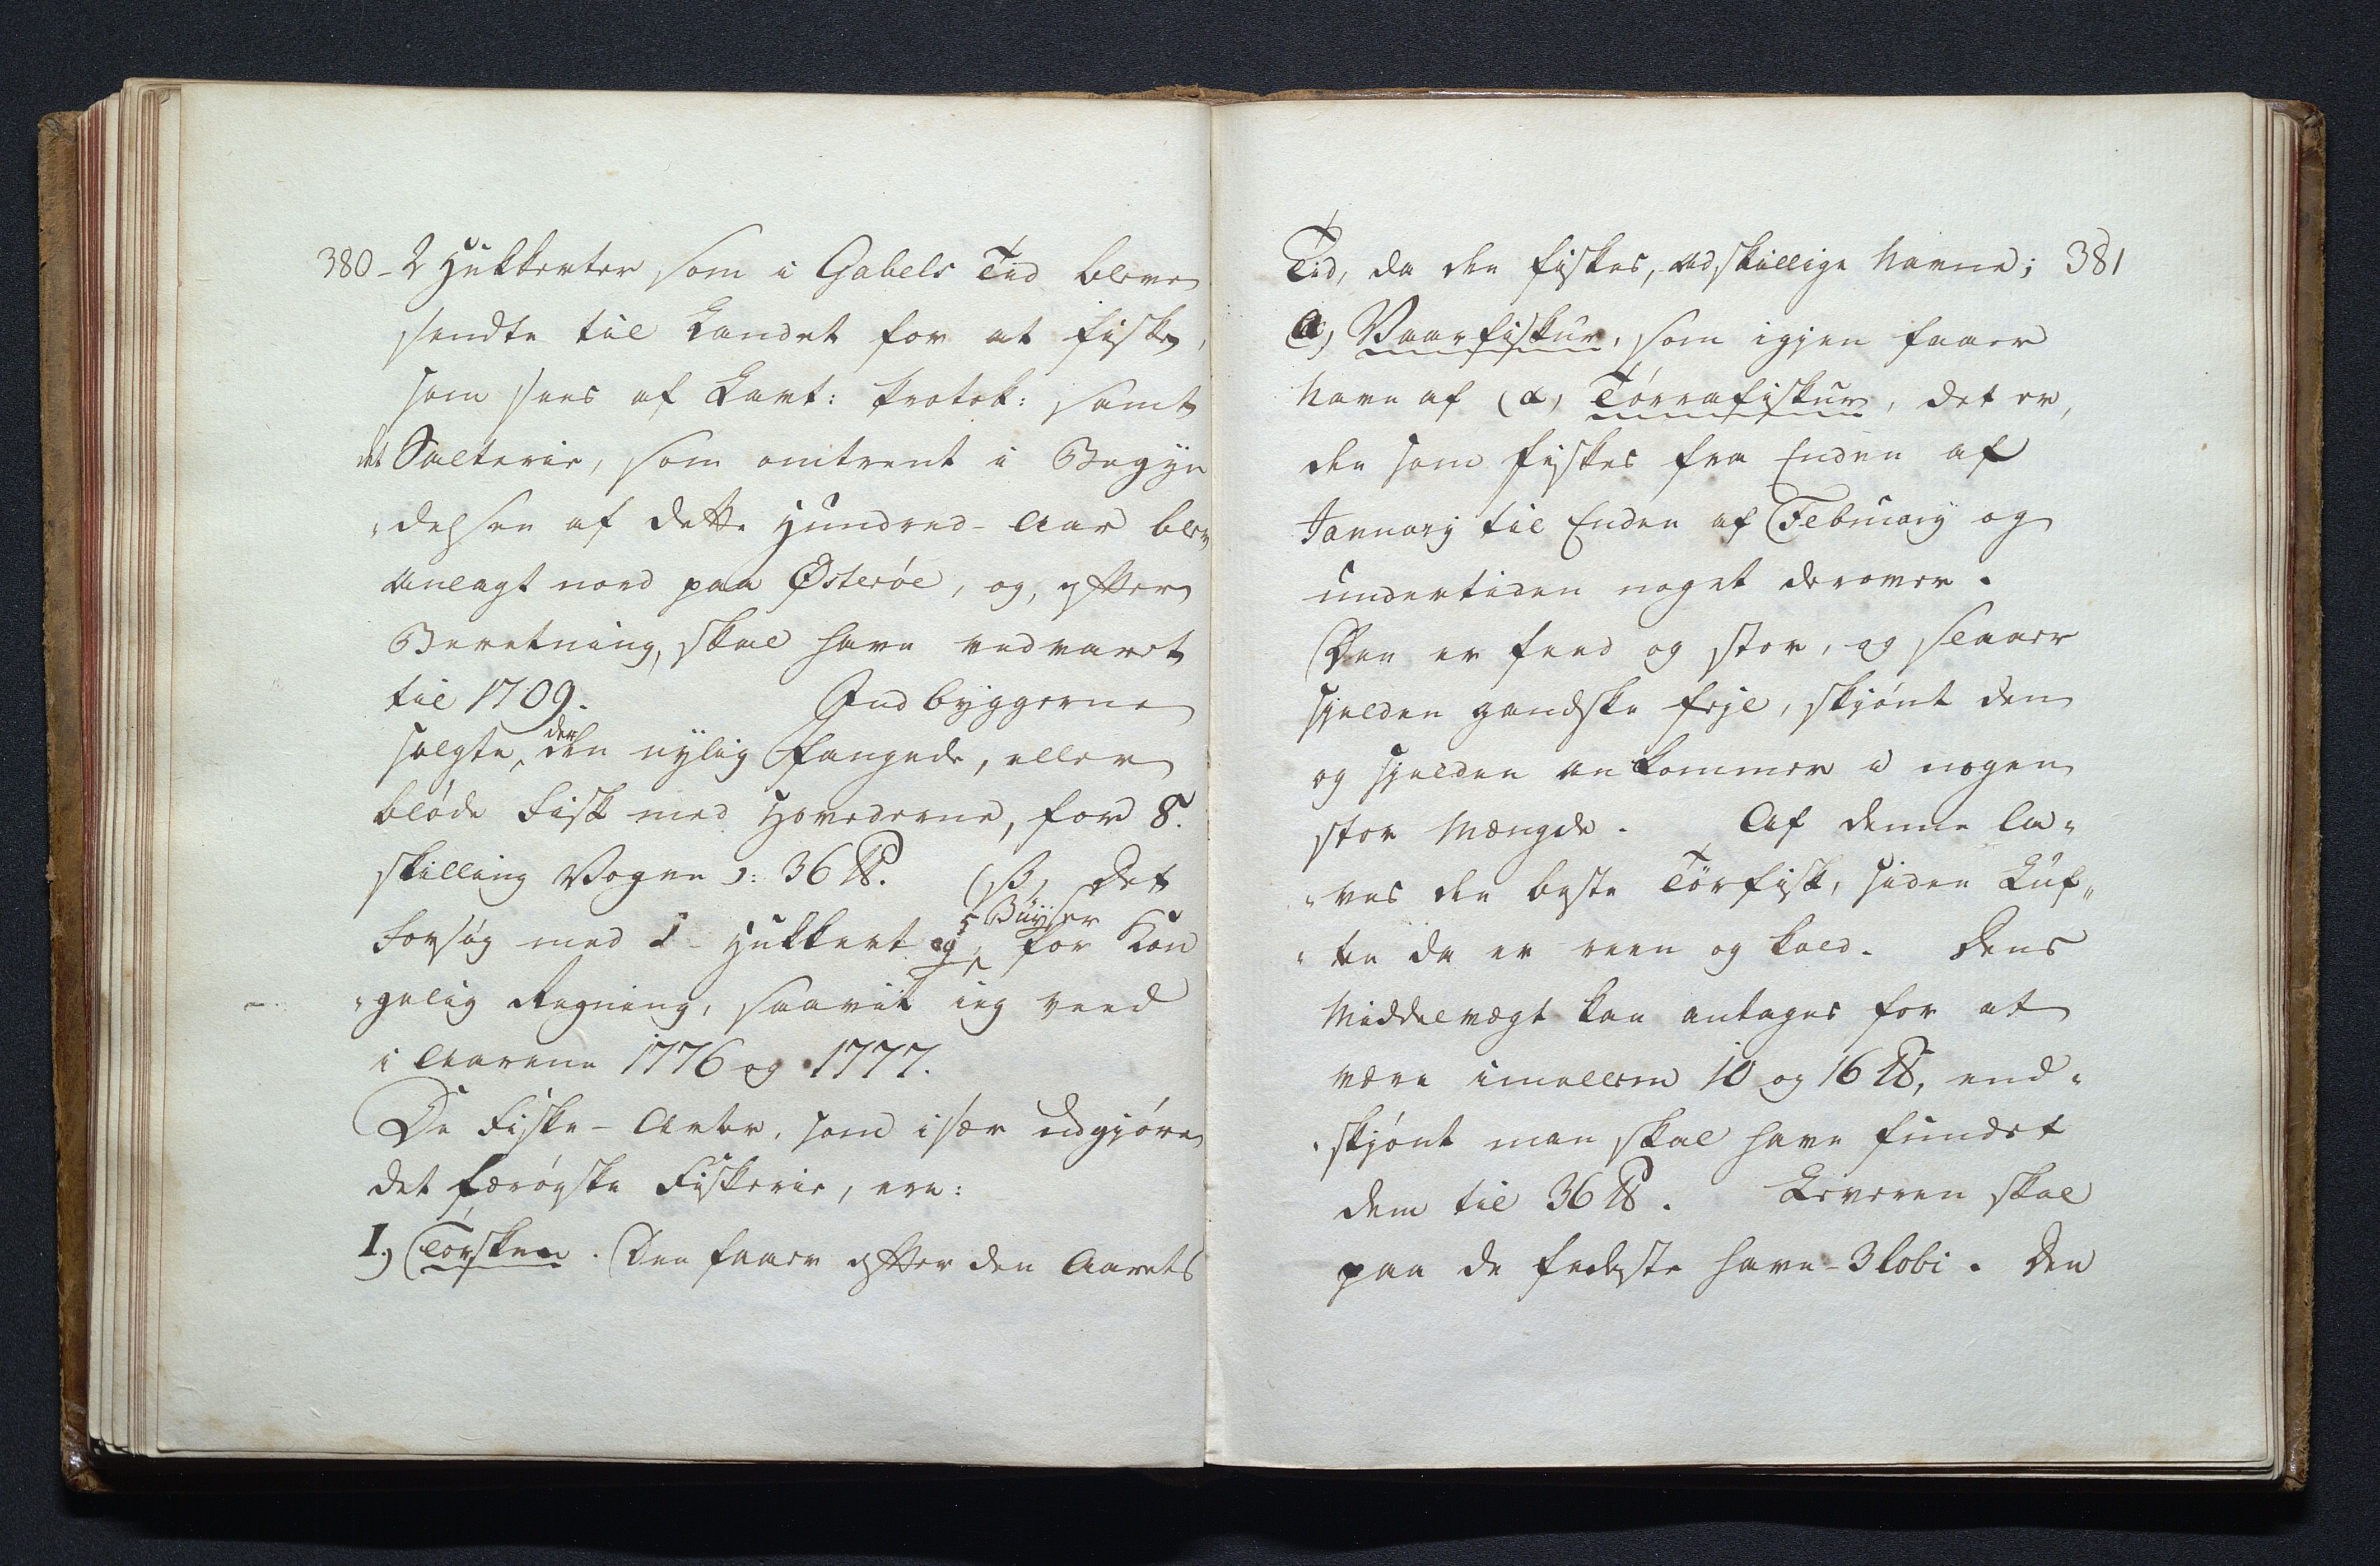 380
2 Hukkerter som i Gabels Tid bleve
sendte til Landet for at fiske,
som sees af Lavt: Protok: samt
det Salterie, som omtrent i Begyn
"delsen af dette Hundred-Aar blev
anlagt nord paa Østerøe, og, efter
Beretning, skal have vedvaret
til 1709. Indbyggerne
solgte, der den nylig fangede, eller
bløde Fisk med Hovederne, for 8.
skilling Vogen ɔ: 36 ℔. (β, Det
5 Buyser
Forsøg med 1 Hukkert og for Kon
"gelig Regning, saavit ieg veed
i Aarene 1776 og 1777.
De Fiske-Arter, som især udgjøre
det færøyske Fiskerie, ere:
I.) Torsken. Den faaer efter den Aarets
381
Tid, da den fiskes, adskillige Navne;
a) Vaarfiskur, som igjen faaer
Navn af (α, Tórrafiskur, det er,
den som fiskes fra Enden af
Januarij til Enden af Februarij og
undertiden noget derover.
Den er feed og stor, og slaaer
sjelden gandske fejl, skjønt den
og sjelden ankommer i nogen
stor Mængde. Af denne la"
"ves den beste Tørfisk, siden Luf"
"ten da er reen og kold. Dens
Middelvægt kan antages for at
være imellem 10 og 16 ℔, end"
"skjønt man skal have fundet
dem til 36 ℔. Leveren skal
paa de fedeste have 3 lobi. Den